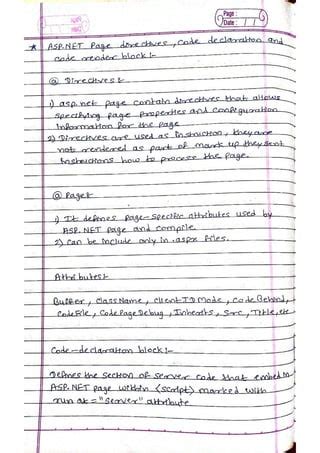 Page :
Date : / /
* ASP.NET Page directives, code declaration and
code render block :-
@ Directives :-
1) asp.net page contain directives that allows
specifying page properties and configuration
Information for the page
2) Directives are used as instruction, they are
not rendered as part of mark up they sent
Instructions how to process the page.
@ Page :-
1) It defines page-specific attributes used by
ASP. NET page and compile.
2) can be include only in .aspx files.
Attributes :-
Buffer, className, clientID Mode, code Behind,
CodeFile, Code Page Debug, Inherits, Src, Title, etc
Code-declaration block :-
Defines the section of server code that embed in
ASP.NET page within <script> marked with
run at = "server" attribute